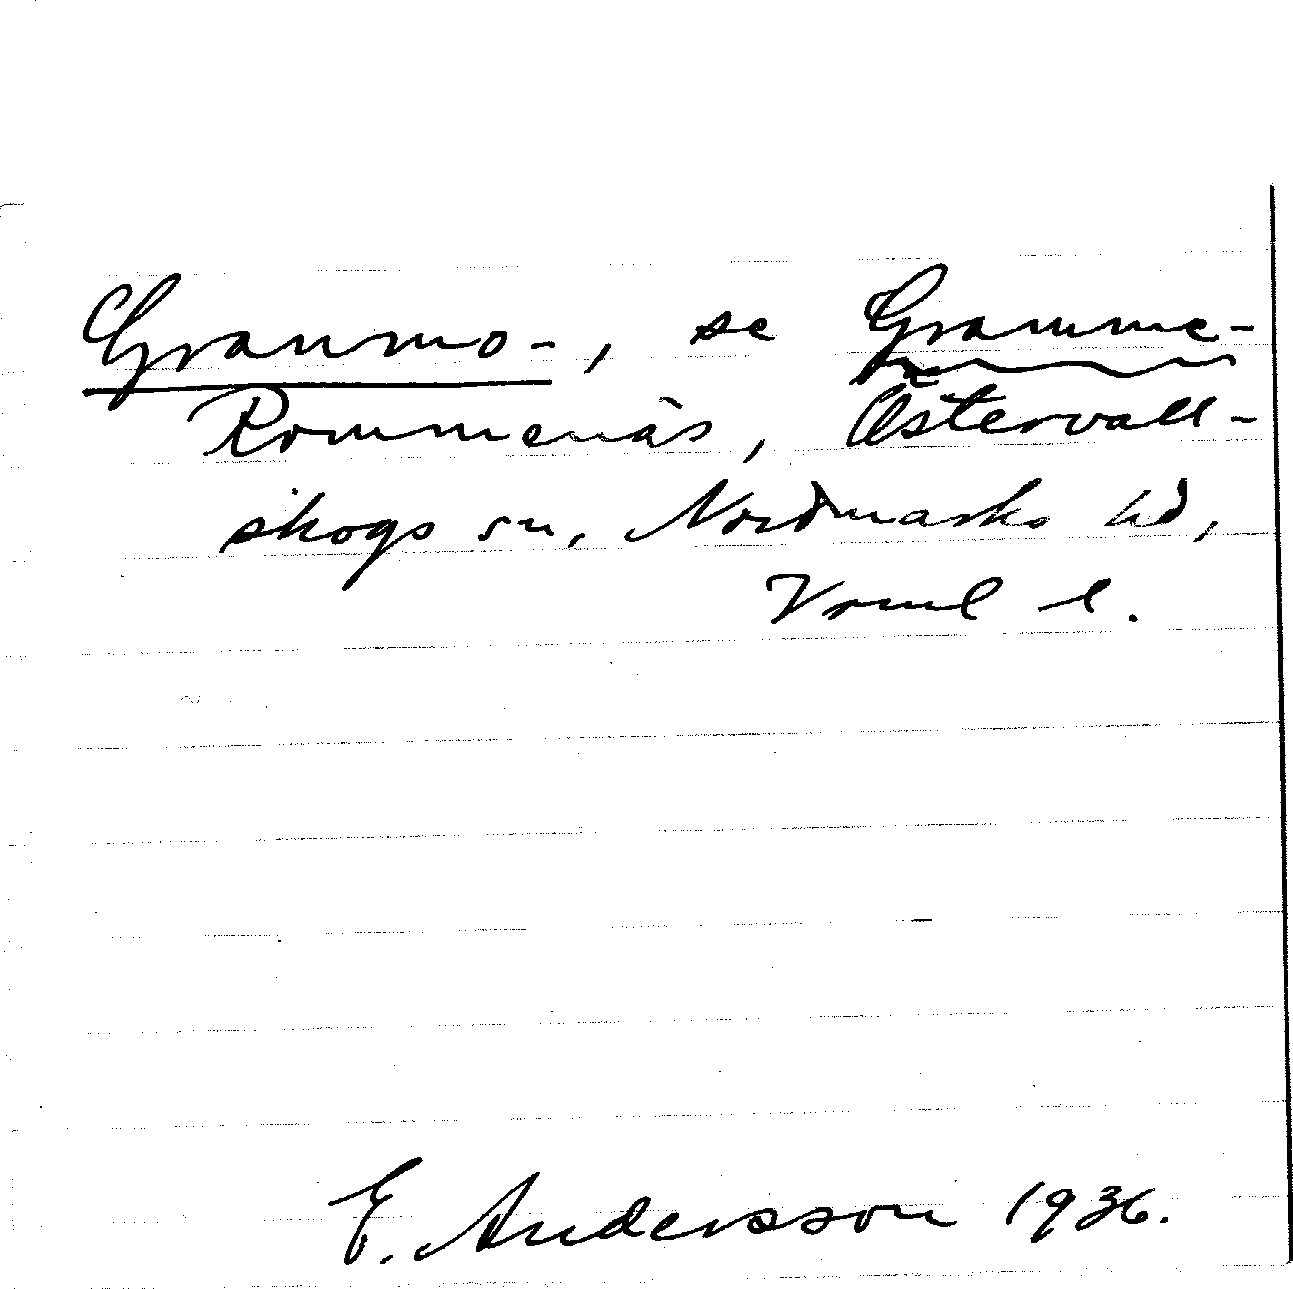 Granmo-, se Gramme-
Rommenäs, Östervall-
skogs sn, Nordmarks hd,
Vrml l.
E. Andersson 1936.